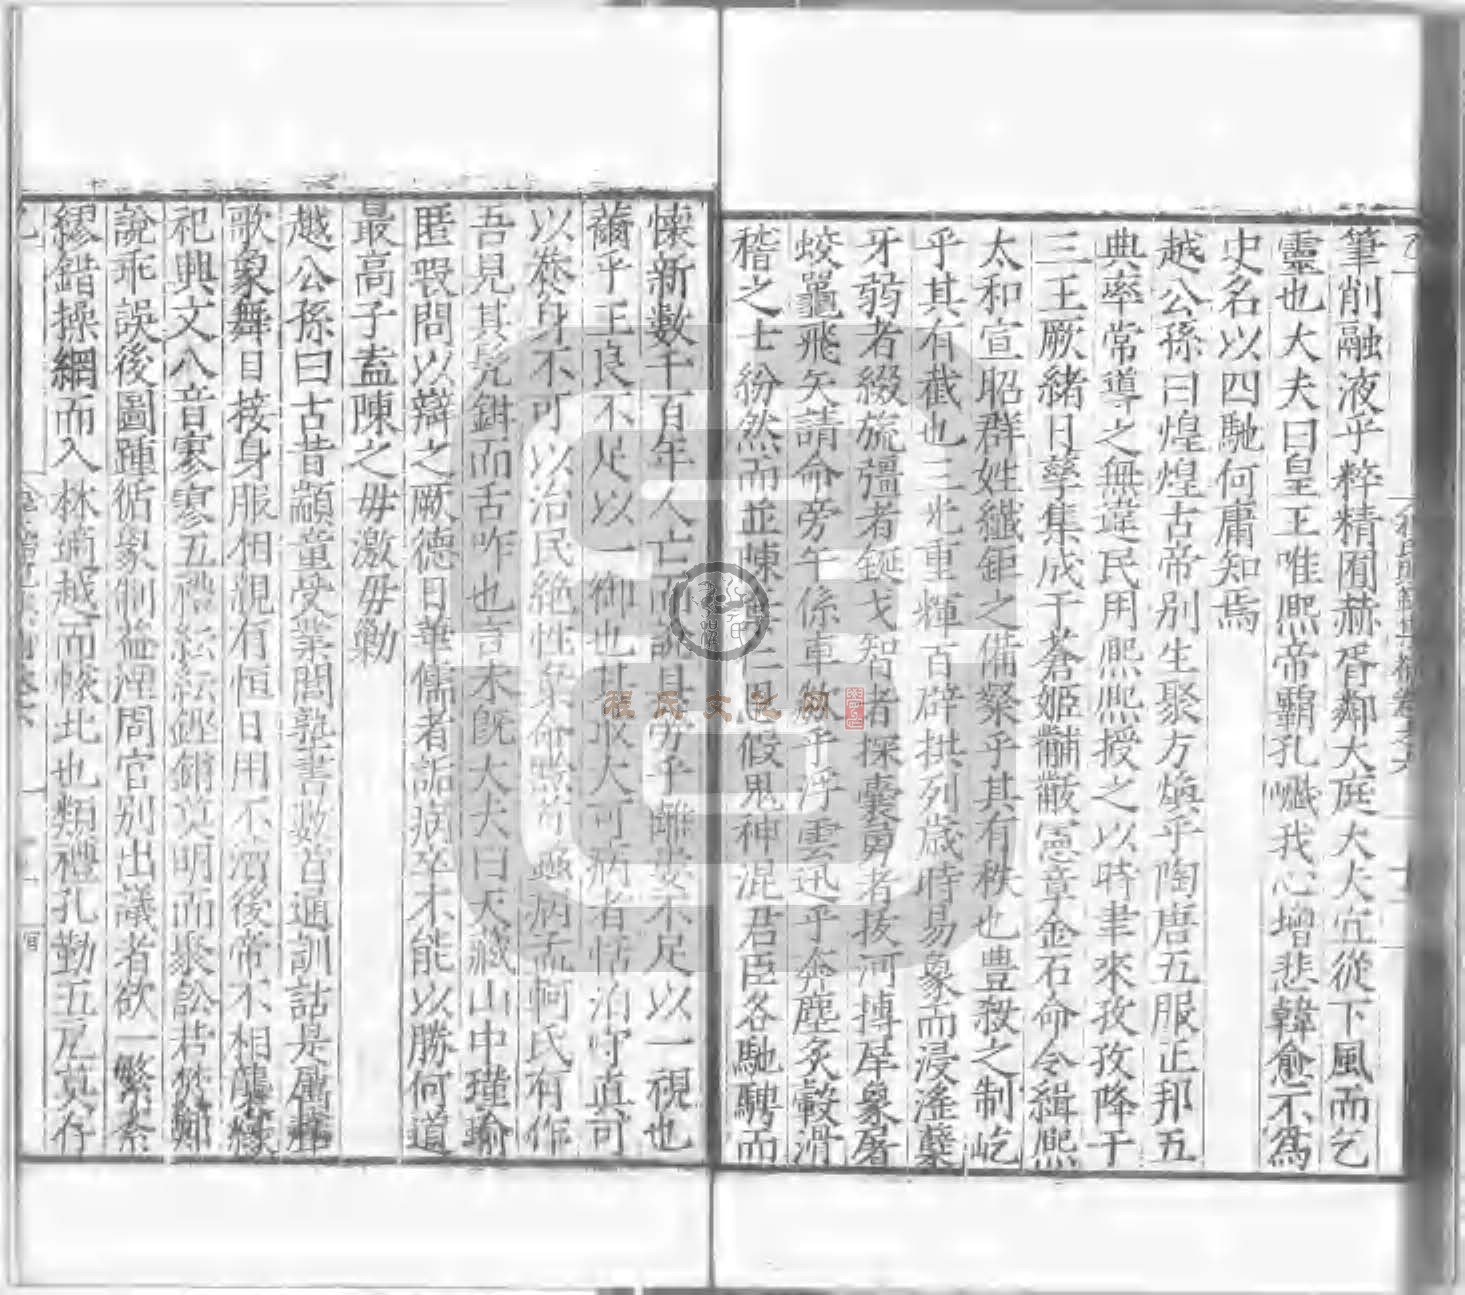 筆削融液乎粹精囿赫胥鄰大庭大夫宜從下風而乞
靈也大夫曰皇王唯熙帝霸孔巇我心增悲韓愈不為
史名以四馳何庸知焉
越公孫曰煌煌古帝別生聚方煥乎陶唐五服正邦五
典率常導之無違民用熙熙授之以時聿來孜孜降于
三王厥緒日孳集成于蒼姬黼黻憲章金石命令緝熙
太和宣昭群姓纖鉅之備粲乎其有秩也豊殺之制屹
乎其有截也三光重輝百辟拱列歲時易象而浸淫蘖
牙弱者綴旒彊者鋋戈智者探囊勇者拔河搏犀象屠
蛟鼉飛矢請命旁午係車歘乎浮雲迅乎奔塵炙轂滑
稽之士紛然而並悚仁思假鬼神混君臣各馳騁而
懷新數千百年人亡而乎離婁不足以一視也
乎王良不足以一御也其最大可病者恬泊守真可
以葆身不可以治民絶性柔命病孟軻氏有作
吾見其鉗而舌咋也言未旣大夫曰天藏山中瑾瑜
匿瑕問以辯之厥德日華儒者詬病卒未能以勝何道
最高子盍陳之毋激毋勦
越公孫曰古昔顓童受業閭塾書數首通訓詁是屬
歌象舞日接身服相親有恒日用不消後帝不相襲緣
祀興文八音寥寥五禮紜紜鏗鏘莫明而聚訟若於鄭
說乖誤後圖踵循象制湮問官別出議者欲一繁柰
繆錯操網而入林適越而帙此也類禮孔勤五瓦莫行
程氏文化网